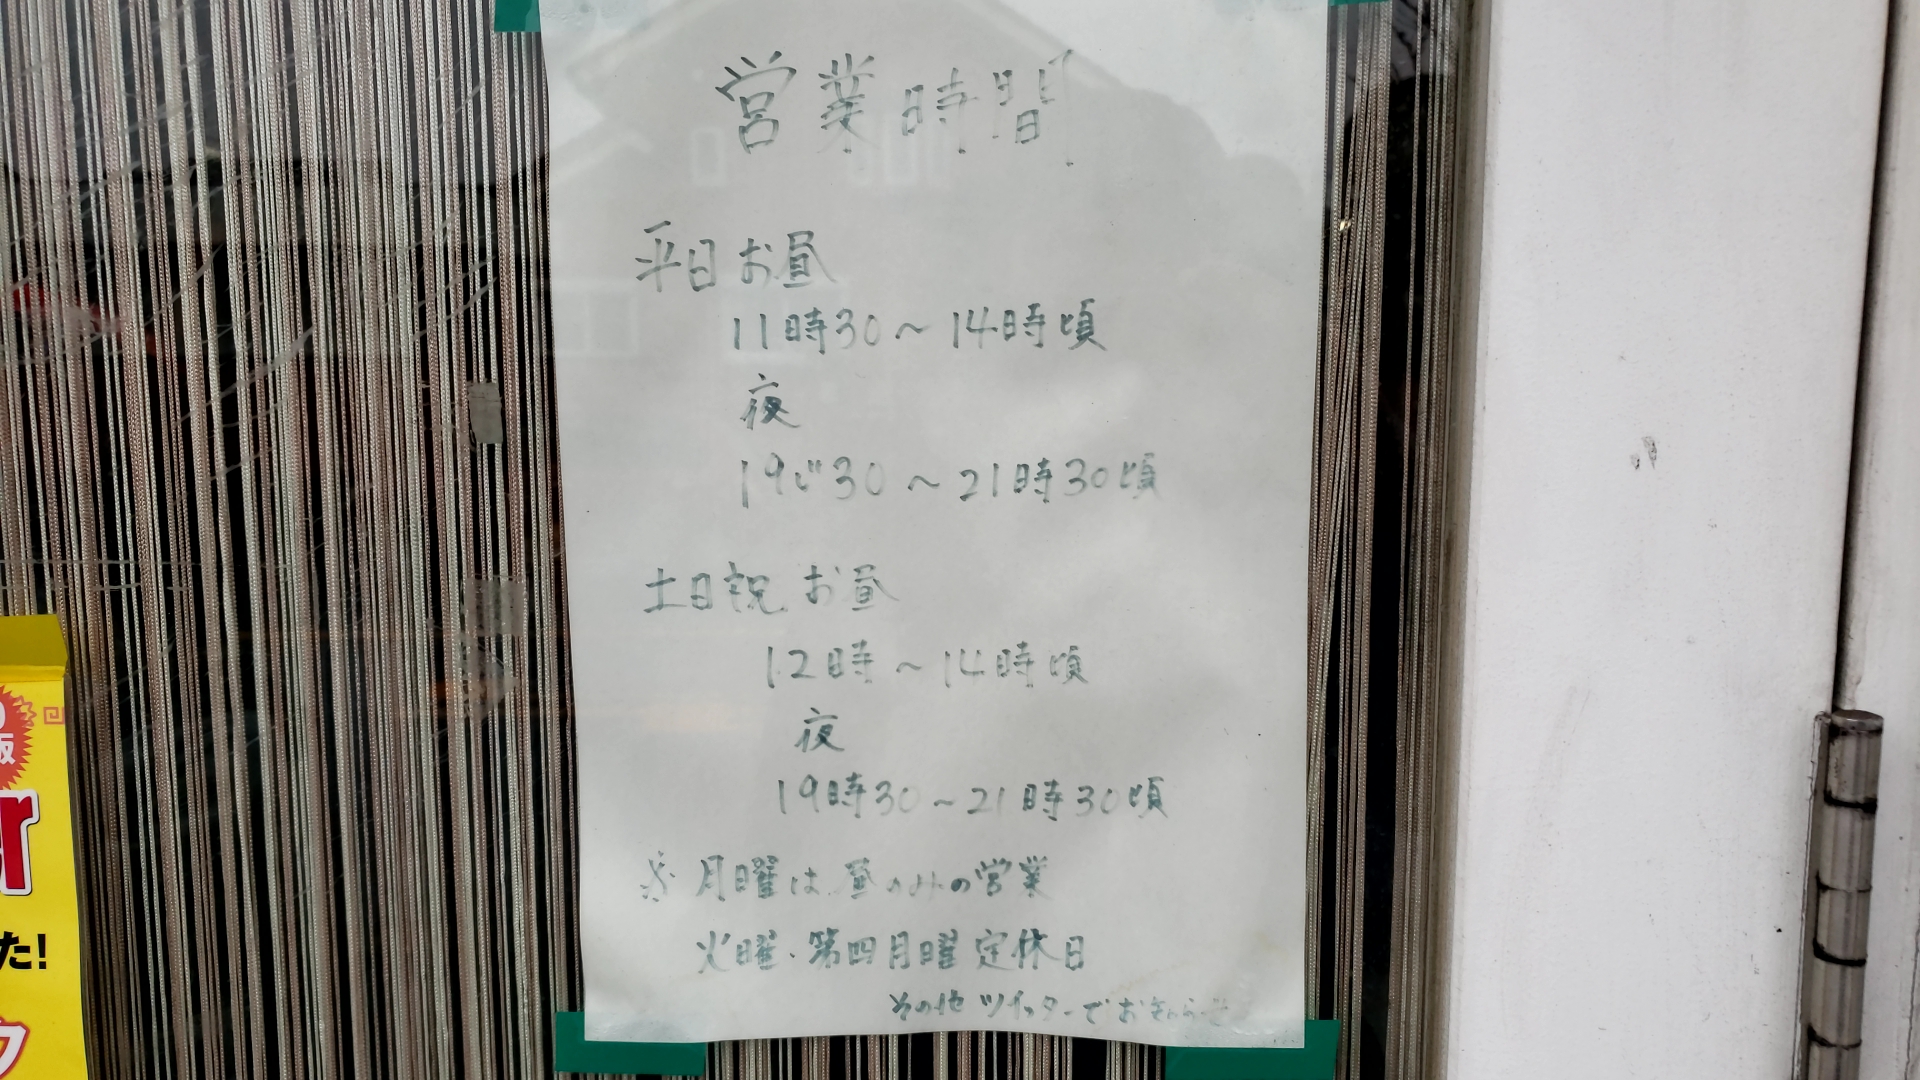 営業時間
平日お昼
11時30〜14時頃
夜
19じ30〜21時30頃
土日祝 お昼
12時〜14時頃
夜
19時30〜21時30頃
※月曜は昼のみの営業
火曜・第四月曜定休日
その他ツイッターでお知らせ
た!